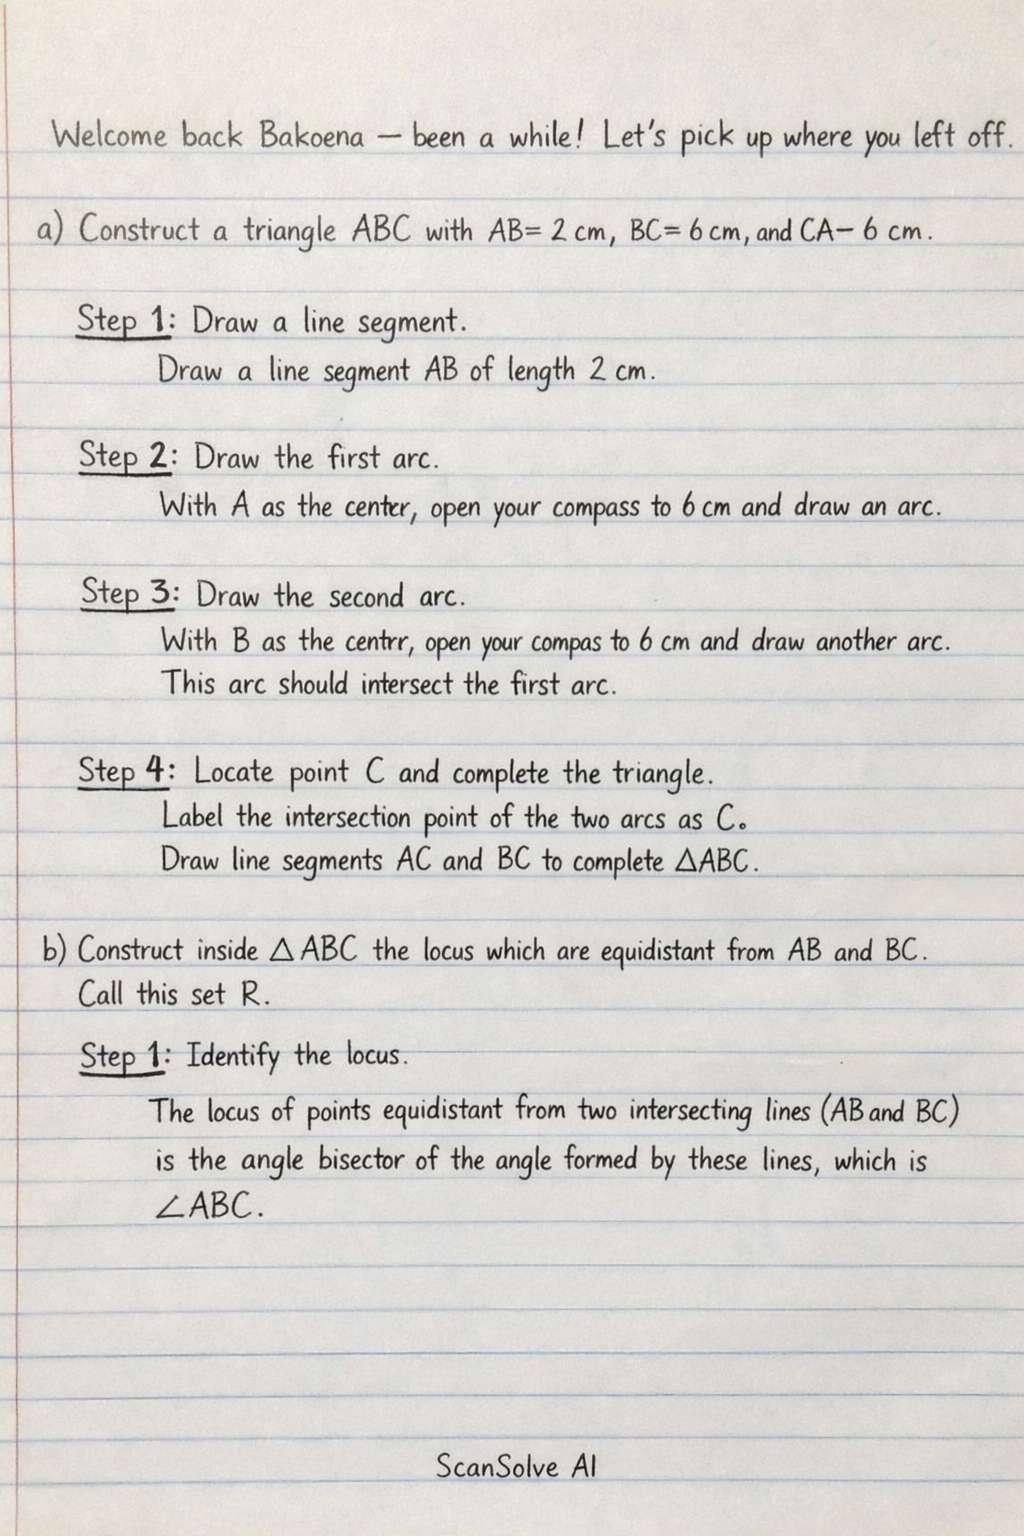 Welcome back Bakoena — been a while! Let's pick up where you left off.
a) Construct a triangle ABC with AB= 2 cm, BC= 6 cm, and CA– 6 cm.
Step 1: Draw a line segment.
Draw a line segment AB of length 2 cm.
Step 2: Draw the first arc.
With A as the center, open your compass to 6 cm and draw an arc.
Step 3: Draw the second arc.
With B as the centrr, open your compas to 6 cm and draw another arc.
This arc should intersect the first arc.
Step 4: Locate point C and complete the triangle.
Label the intersection point of the two arcs as C.
Draw line segments AC and BC to complete △ABC.
b) Construct inside △ ABC the locus which are equidistant from AB and BC.
Call this set R.
Step 1: Identify the locus.
The locus of points equidistant from two intersecting lines (AB and BC)
is the angle bisector of the angle formed by these lines, which is
∠ABC.
ScanSolve AI